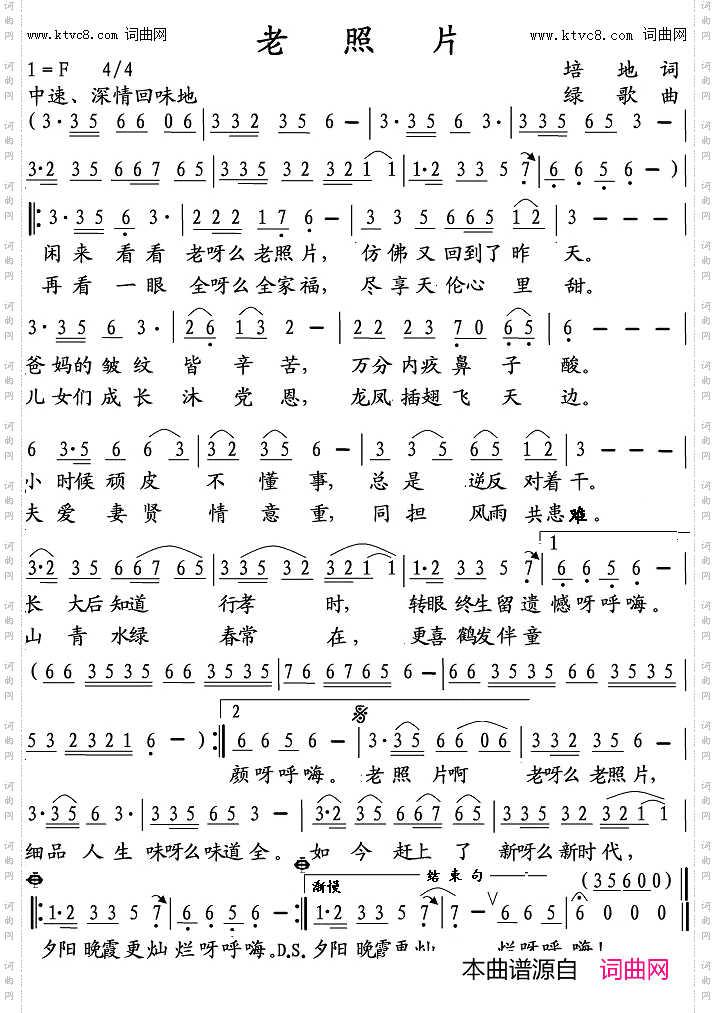 www.ktvc8.com 词曲网 老 照 片 www.ktvc8.com 词曲网
1=F 4/4 培 地 词
中速、深情回味地 绿 歌 曲
(3·35 66 06|332 35 6 −|3·35 6 3·|3335 65 3 −|
3·2 35 667 65|335 32 321 1|1·2 33 5 7|6 6 5 6 −)|
‖: 3·35 6 3·|222 17 6 −|3 35 665 12|3 − − −|
闲来 看看 老呀么老照片, 仿佛又回到了昨 天。
再看 一眼 全呀么全家福, 尽享天伦心 里 甜。
3·35 6 3·|26 13 2 −|22 23 70 65|6 − − −|
爸妈的皱纹 皆 辛苦, 万分内疚鼻 子 酸。
儿女们成长 沐 党 恩, 龙凤插翅飞 天 边。
6 3·5 6 63|32 35 6 −|3 35 65 12|3 − − −|
小 时候顽皮 不 懂事, 总是 逆反 对着干。
夫 爱 妻贤 情 意重, 同担 风雨 共患难。
3·2 35 667 65|335 32 321 1|1·2 33 5 7|1 6 6 5 6 −|
长 大后知道 行孝 时, 转眼终生留遗 憾呀呼嗨。
山 青 水绿 春常 在, 更喜鹤发伴童
(66 3535 66 3535|76 6765 6 −|66 3535 66 3535|
53 2321 6 −) :‖2 6 6 5 6 −|3·35 66 06|332 35 6 −|
颜呀呼嗨。 老照 片啊 老呀么老照片,
3·35 6 3·|3335 65 3 −|3·2 35 667 65|335 32 321 1|
细品 人生 味呀么味道全。 如今 赶上了 新呀么新时代,
渐慢 结束句 (35600)
‖: 1·2 33 5 7|6 6 5 6 − :‖1·2 33 5 7|7 − 6 6 5|6 0 0 0‖
夕阳晚霞更灿 烂呀呼嗨。D.S.夕阳晚霞更灿 烂呀呼 嗨!
本曲谱源自 词曲网